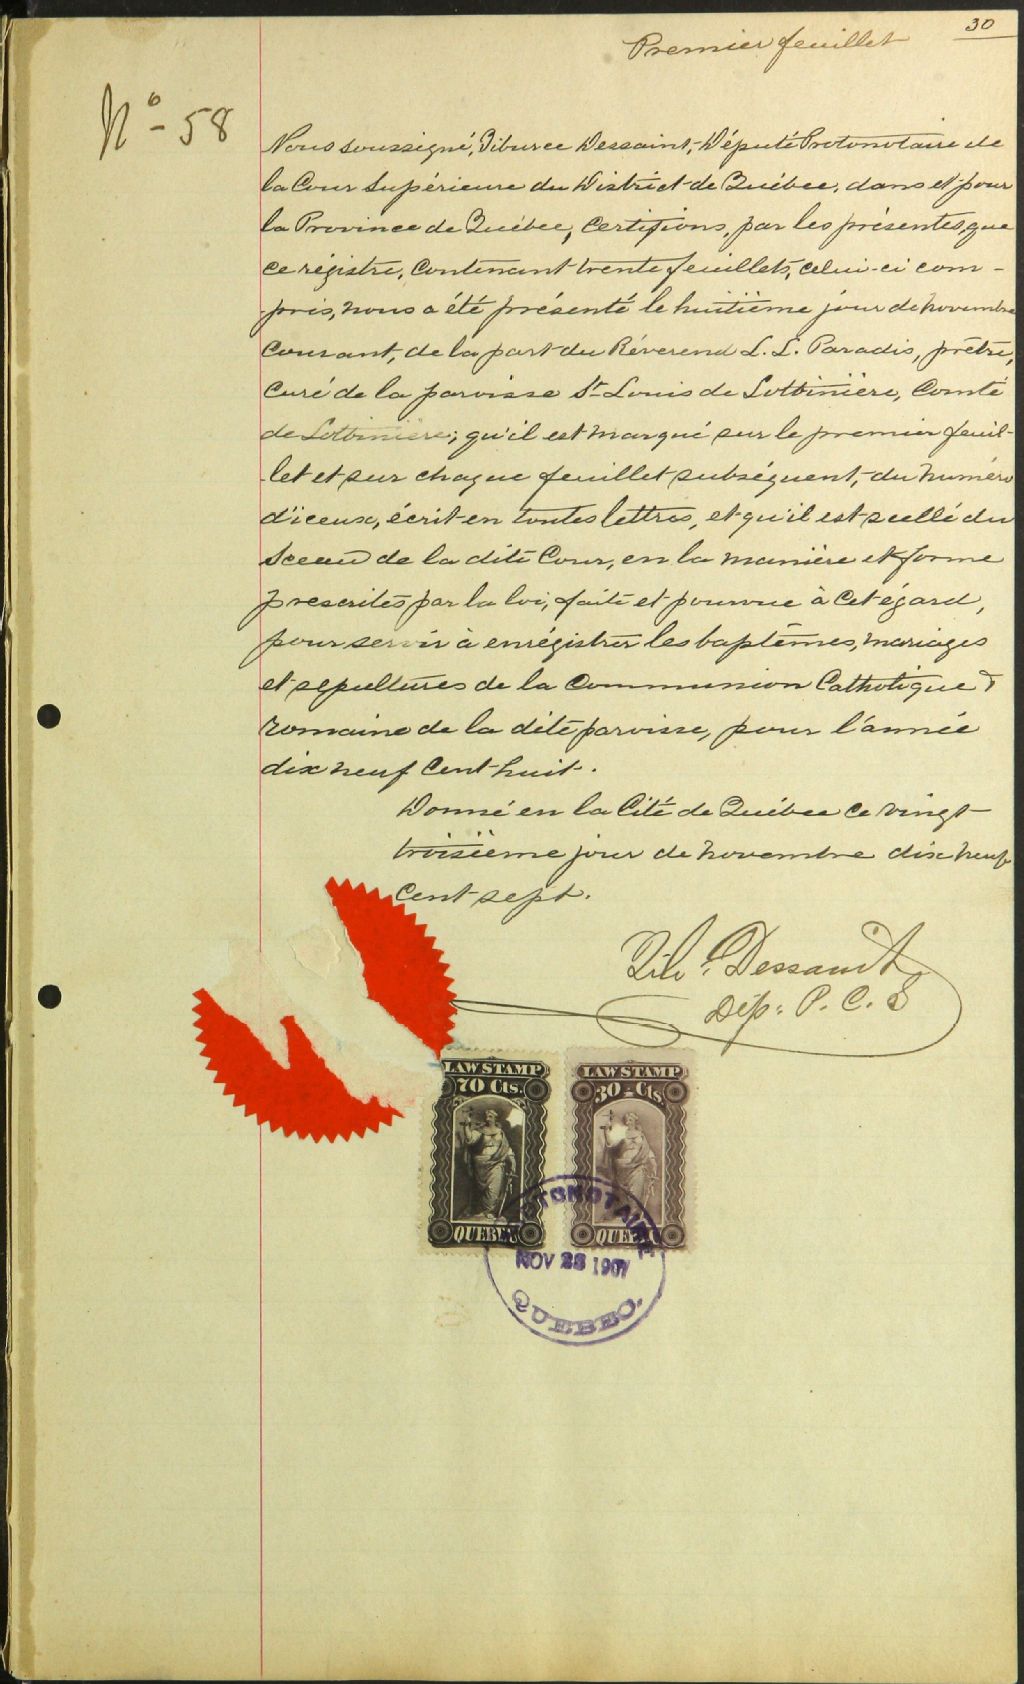 30
Premier feuillet
No - 58
Nous soussigné, Tiburce Dessaint, Député Protonotaire de
la Cour Supérieure du District de Québec, dans et pour
la Province de Québec, certifions, par les présentes, que
ce régistre, contenant trente feuillets, celui-ci com-
pris, nous a été présenté le huitième jour de novembre
courant, de la part du Réverend L. L. Paradis, prêtre,
curé de la paroisse St-Louis de Lotbinière, Comté
de Lotbinière; qu'il est marqué sur le premier feuil-
let et sur chaque feuillet subséquent, du numéro
d'iceux, écrit en toutes lettres, et qu'il est scellé du
Sceau de la dite Cour, en la manière et forme
prescrites par la loi, faite et pourvue à cet égard,
pour servir à enrégistrer les baptêmes, mariages
et sépultures de la Communion Catholique &
romaine de la dite paroisse, pour l'année
dix neuf cent huit.
Donné en la Cité de Québec ce vingt
troisième jour de novembre dix neuf
cent sept.
Tib. Dessaint
Dép. P. C. S
LAW STAMP
70 Cts.
QUEBEC
LAW STAMP
30 Cts.
QUEBEC
PROTONOTAIRE
NOV 23 1907
QUEBEC.